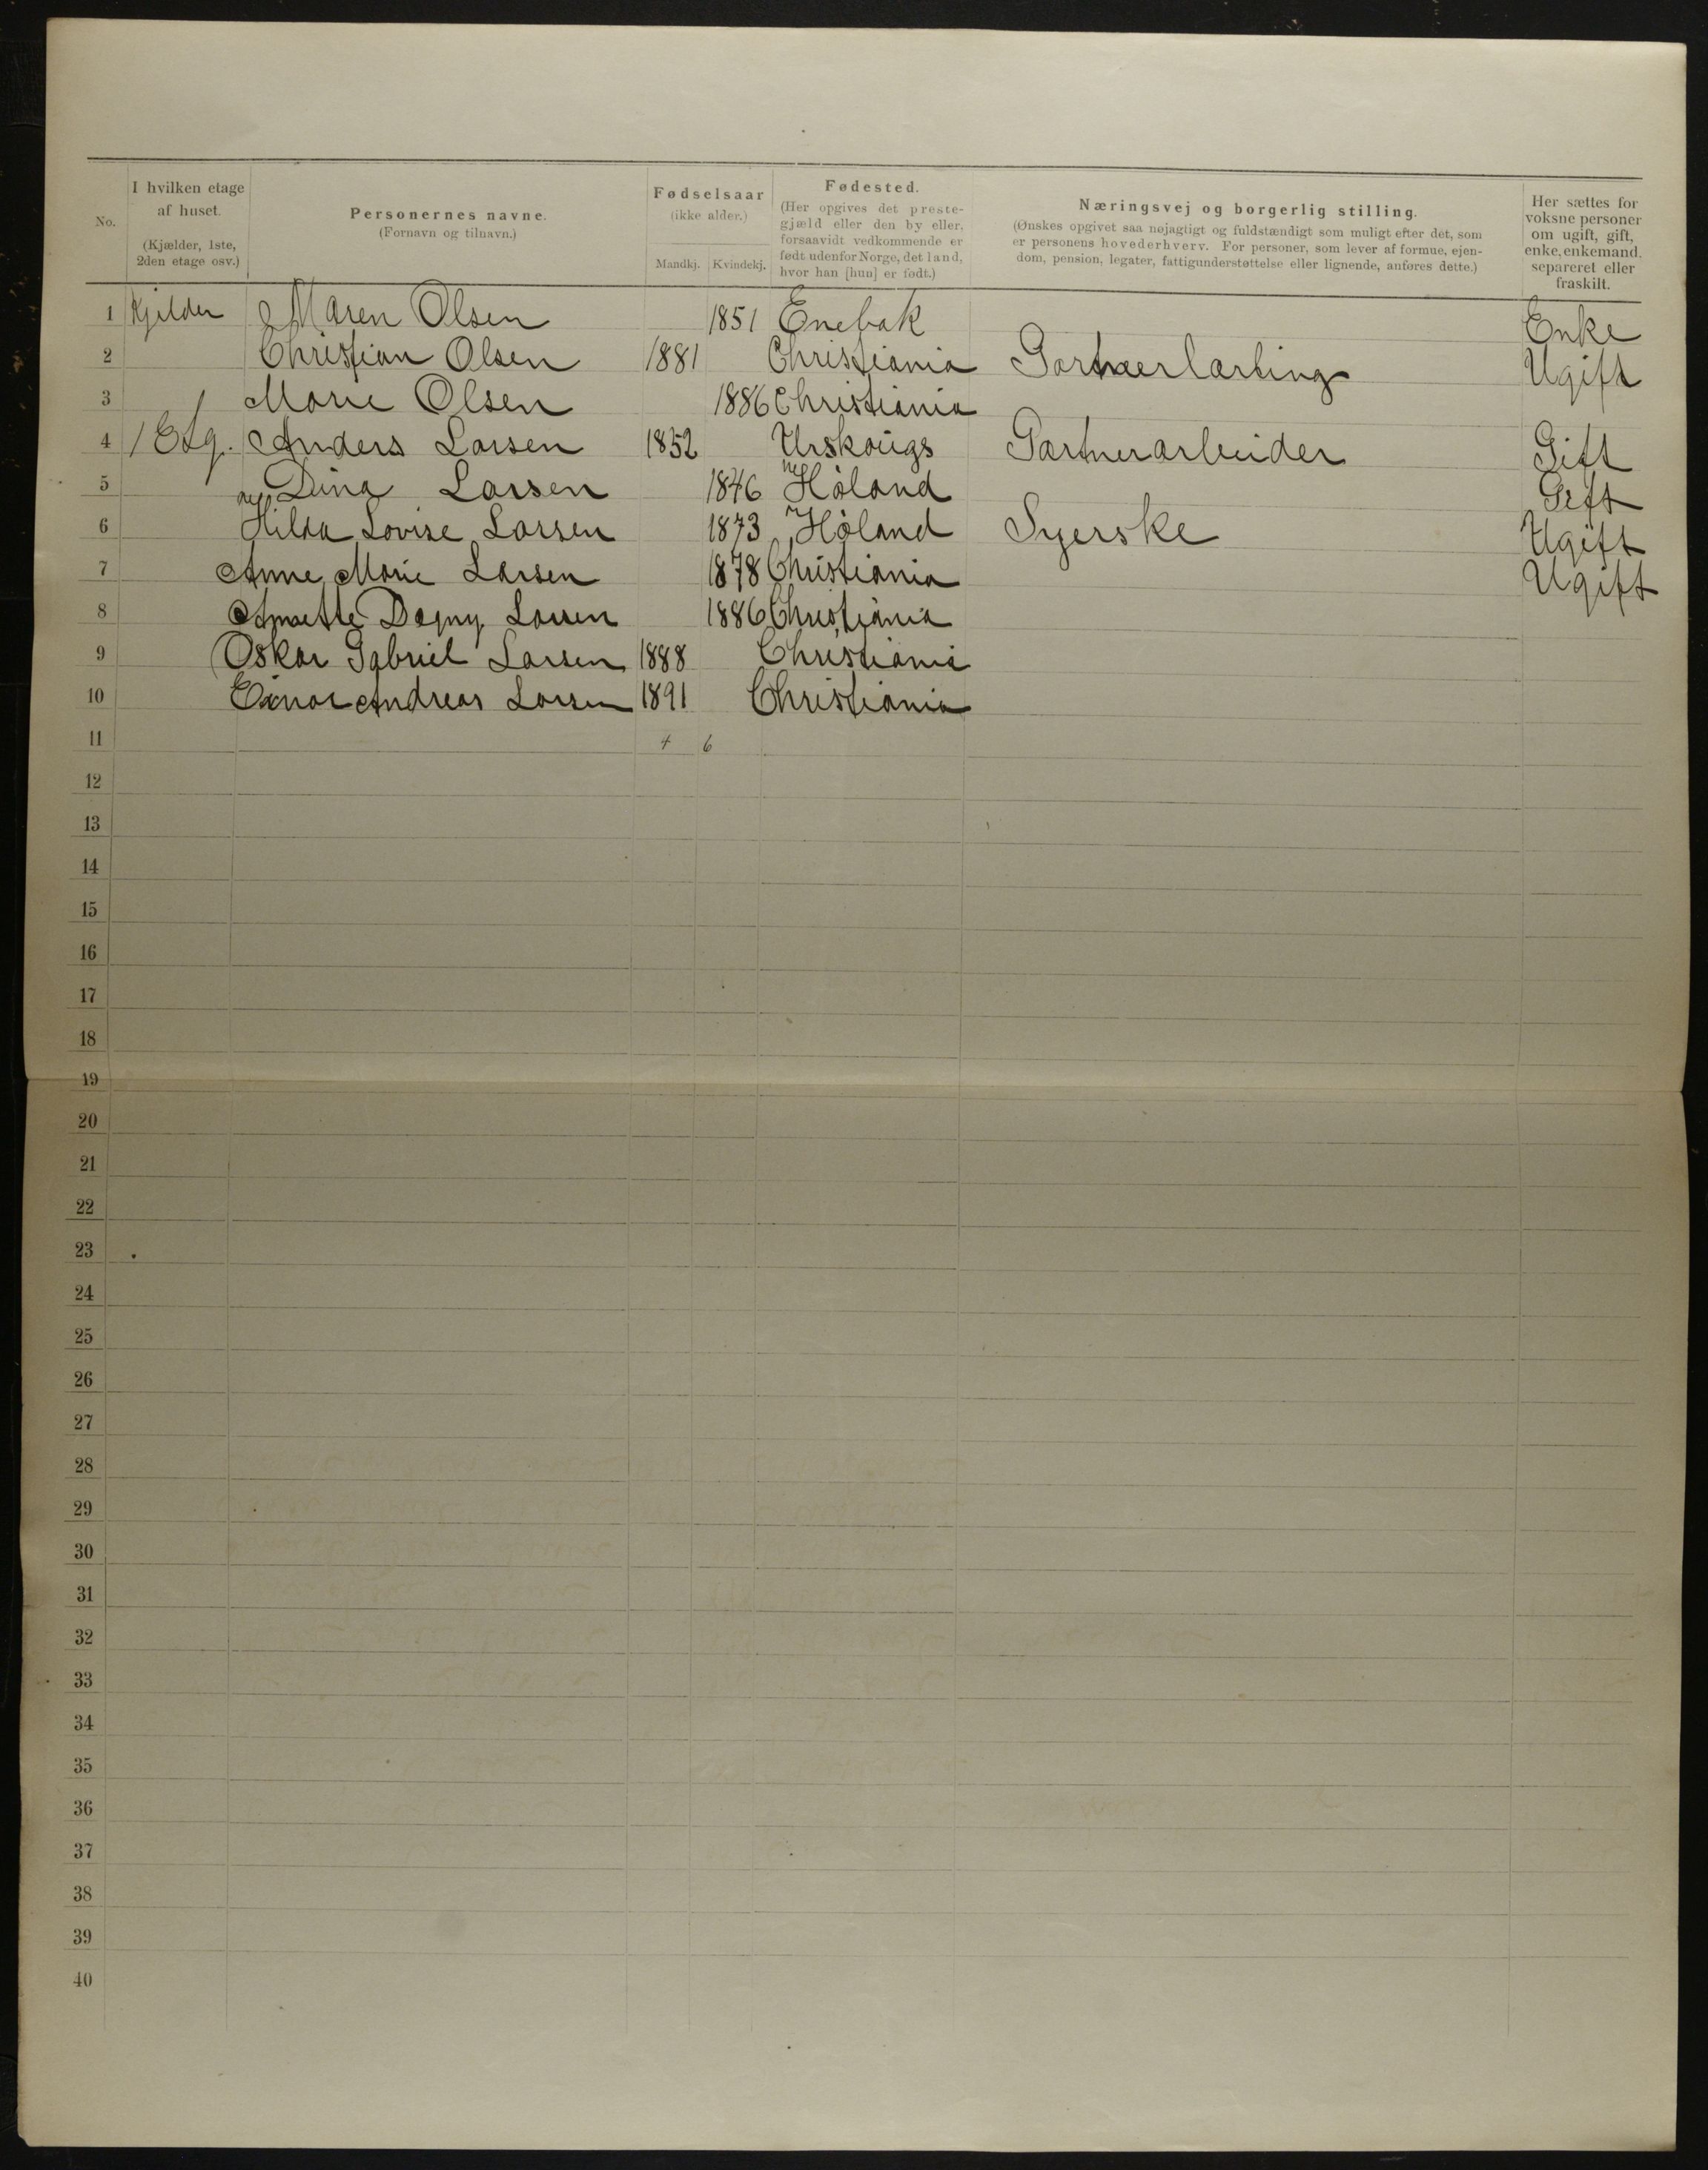 No. I hvilken etage af huset. (Kjælder, 1ste, 2den etage osv.) Personernes navne. (Fornavn og tilnavn.) Fødselsaar (ikke alder.) Mandkj. Kvindekj. Fødested. (Her opgives det prestegjæld eller den by eller, forsaavidt vedkommende er født udenfor Norge, det land, hvor han [hun] er født.) Næringsvej og borgerlig stilling. (Ønskes opgivet saa nøjagtigt og fuldstændigt som muligt efter det, som er personens hovederhverv. For personer, som lever af formue, ejendom, pension, legater, fattigunderstøttelse eller lignende, anføres dette.) Her sættes for voksne personer om ugift, gift, enke, enkemand, separeret eller fraskilt.
1 Kjelder Maren Olsen 1851 Enebak Enke
2 Christian Olsen 1881 Christiania Gartnerlærling Ugift
3 Marie Olsen 1886 Christiania
4 1 Etg. Anders Larsen 1852 Urskougs Gartnerarbeider Gift
5 Dina Larsen 1846 Høland Gift
6 Hilda Lovise Larsen 1873 Høland Syerske Ugift
7 Anne Marie Larsen 1878 Christiania Ugift
8 Annette Dagny Larsen 1886 Christiania
9 Oskar Gabriel Larsen 1888 Christiania
10 Einar Andreas Larsen 1891 Christiania
11 4 6
12
13
14
15
16
17
18
19
20
21
22
23
24
25
26
27
28
29
30
31
32
33
34
35
36
37
38
39
40